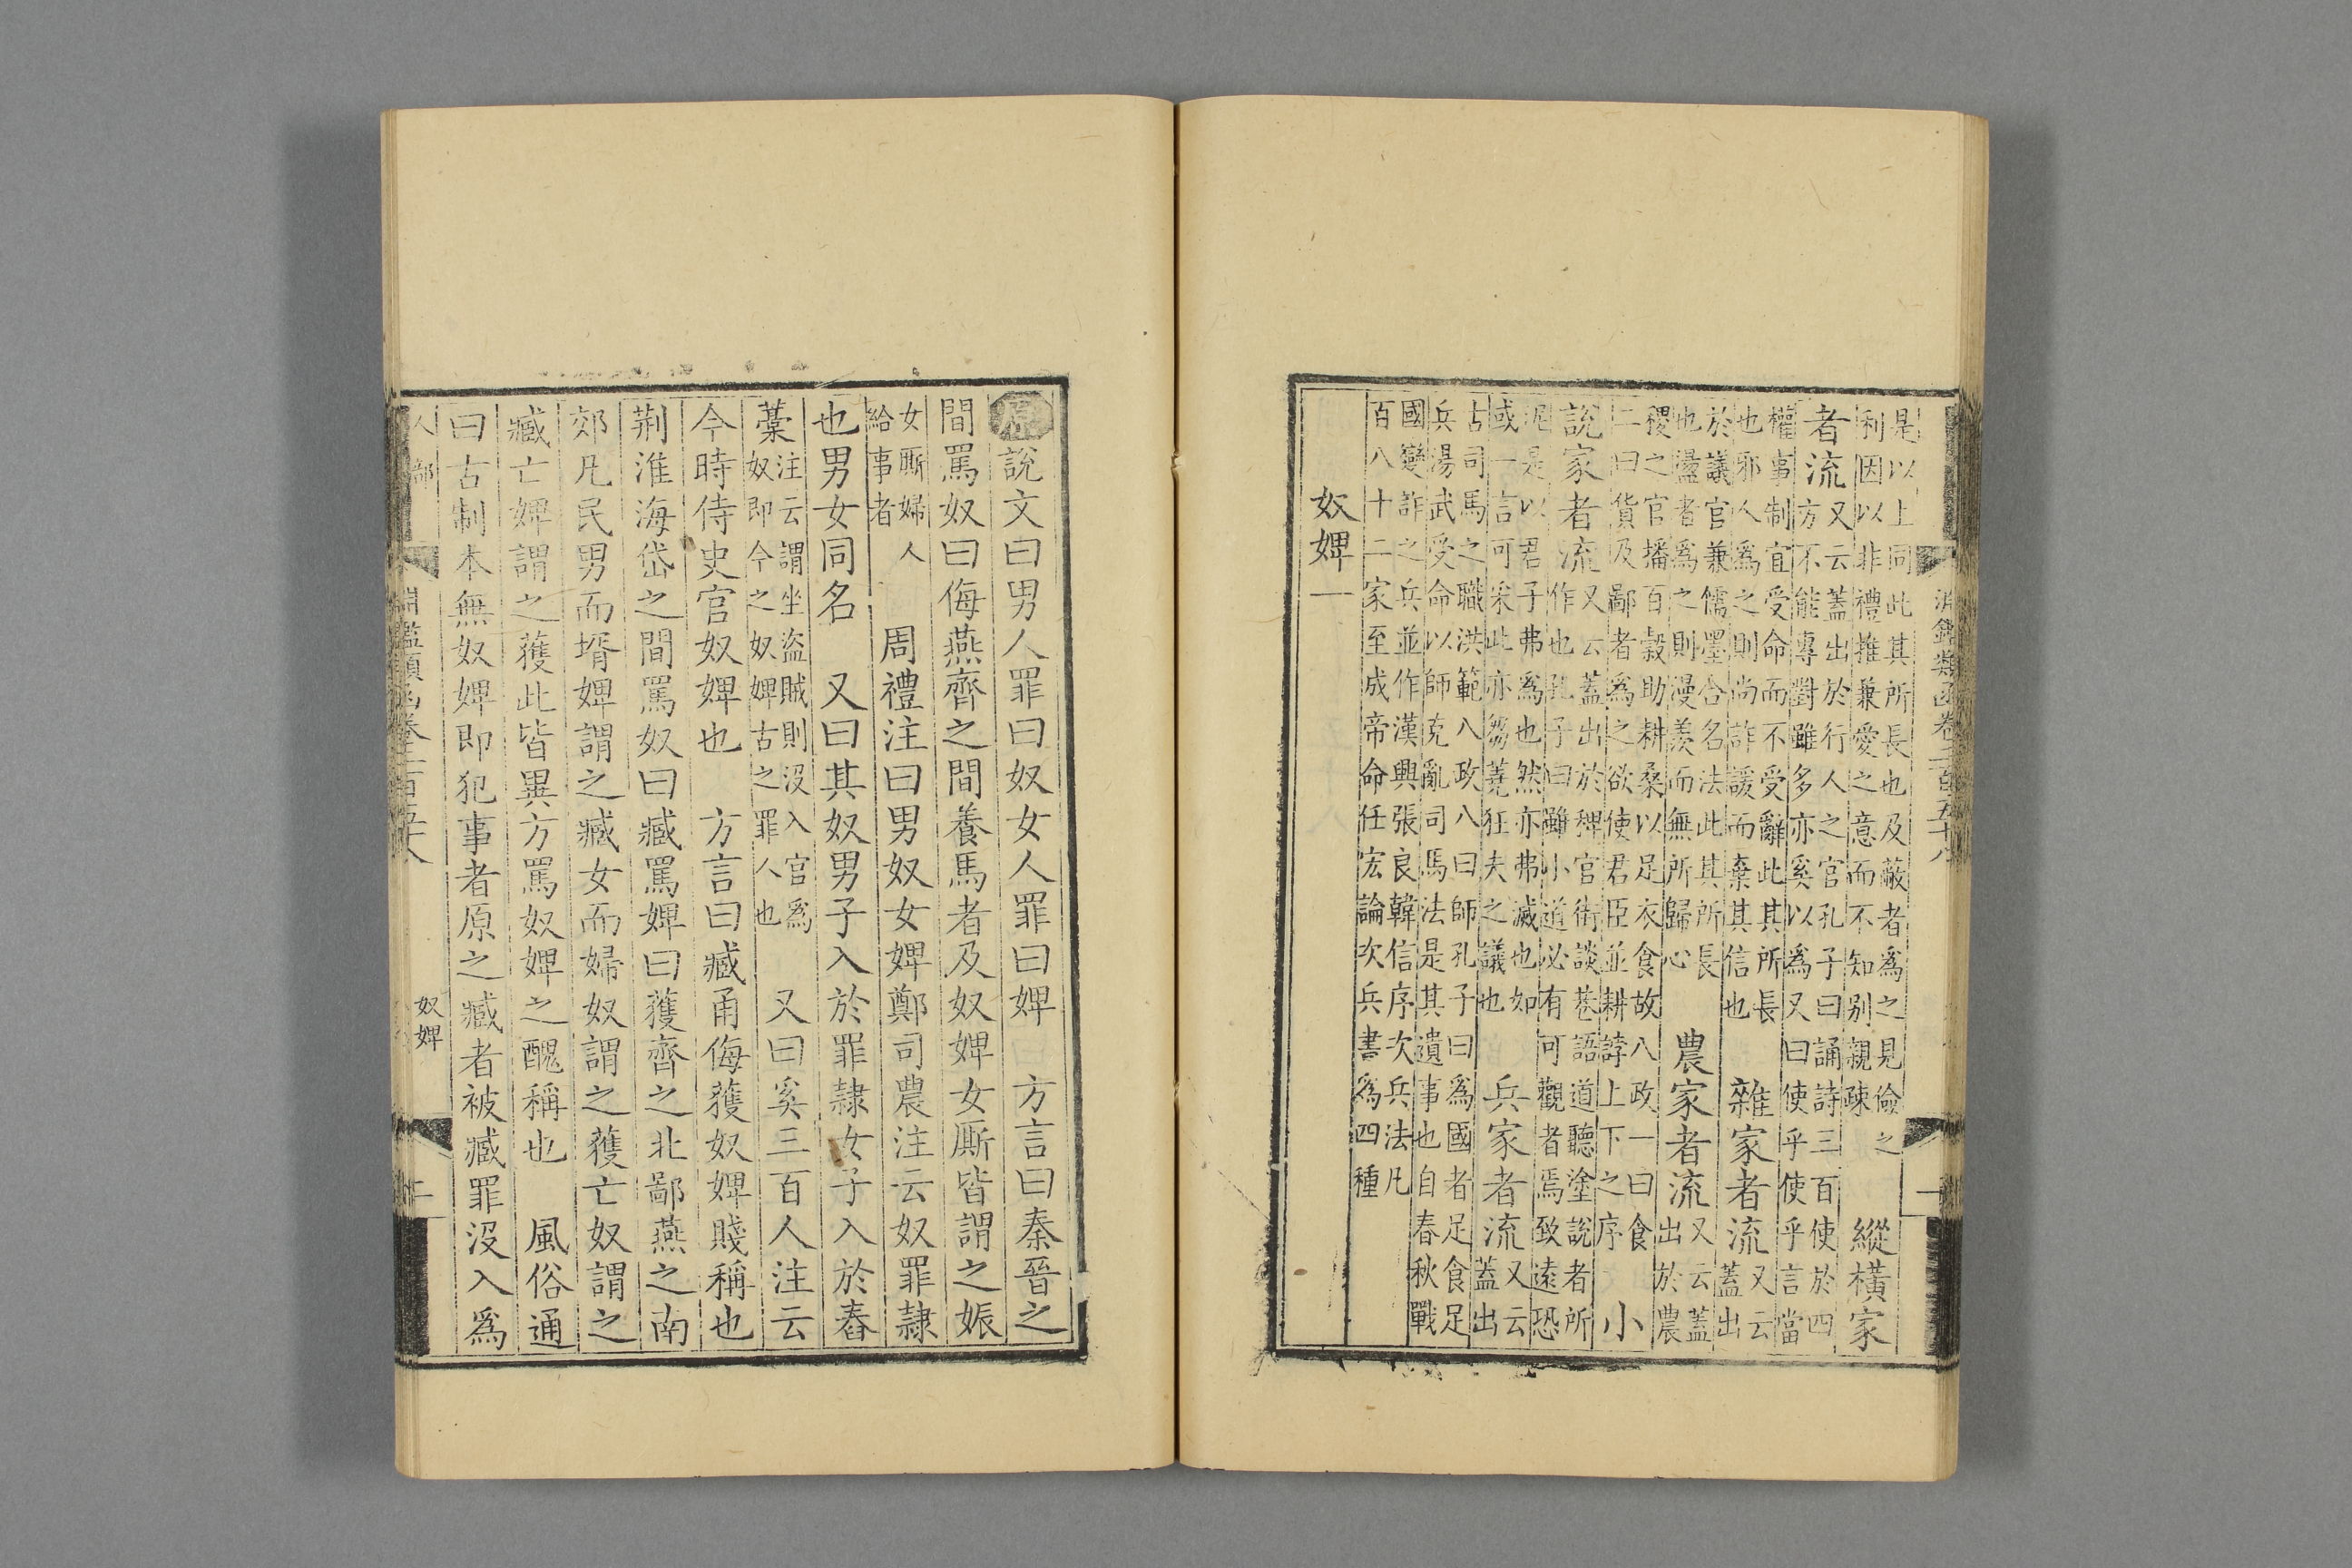 淵鑑類函卷二百五十八
一
是以上同此其所長也及蔽者爲之見儉之
利因以非禮推兼愛之意而不知别親疎
縱橫家
者流
又云蓋出於行人之官孔子曰誦詩三百使於四
方不能專對雖多亦奚以爲又曰使乎使乎言當
權事制宜受命而不受辭此其所長
也邪人爲之則尚詐諼而棄其信也
雜家者流
又云
蓋出
於議官兼儒墨合名法此其所長
也盪者爲之則漫羨而無所歸心
農家者流
又云蓋
出於農
稷之官播百穀助耕桑以足衣食故八政一曰食
二曰貨及鄙者爲之欲使君臣並耕誖上下之序
小
說家者流
又云蓋出於稗官街談巷語道聽塗說者所
作也孔子曰雖小道必有可觀者焉致遠恐
泥是以君子弗爲也然亦弗滅也如
或一言可采此亦芻蕘狂夫之議也
兵家者流
又云
蓋出
古司馬之職洪範八政八曰師孔子曰爲國者足食足
兵湯武受命以師克亂司馬法是其遺事也自春秋戰
國變詐之兵並作漢興張良韓信序次兵法凡
百八十二家至成帝命任宏論次兵書爲四種
奴婢一
原說文曰男人罪曰奴女人罪曰婢 方言曰秦晉之
間罵奴曰侮燕齊之間養馬者及奴婢女廝皆謂之娠
女厮婦人
給事者
周禮注曰男奴女婢鄭司農注云奴罪隸
也男女同名 又曰其奴男子入於罪隸女子入於舂
藁
注云謂坐盜賊則没入官爲
奴即今之奴婢古之罪人也
又曰奚三百人注云
今時侍史官奴婢也 方言曰臧甬侮獲奴婢賤稱也
荆淮海岱之間罵奴曰臧罵婢曰獲齊之北鄙燕之南
郊凡民男而壻婢謂之臧女而婦奴謂之獲亡奴謂之
臧亡婢謂之獲此皆異方罵奴婢之醜稱也 風俗通
曰古制本無奴婢即犯事者原之臧者被臧罪没入爲
人部
淵鑑類函卷二百五十八
奴婢
二